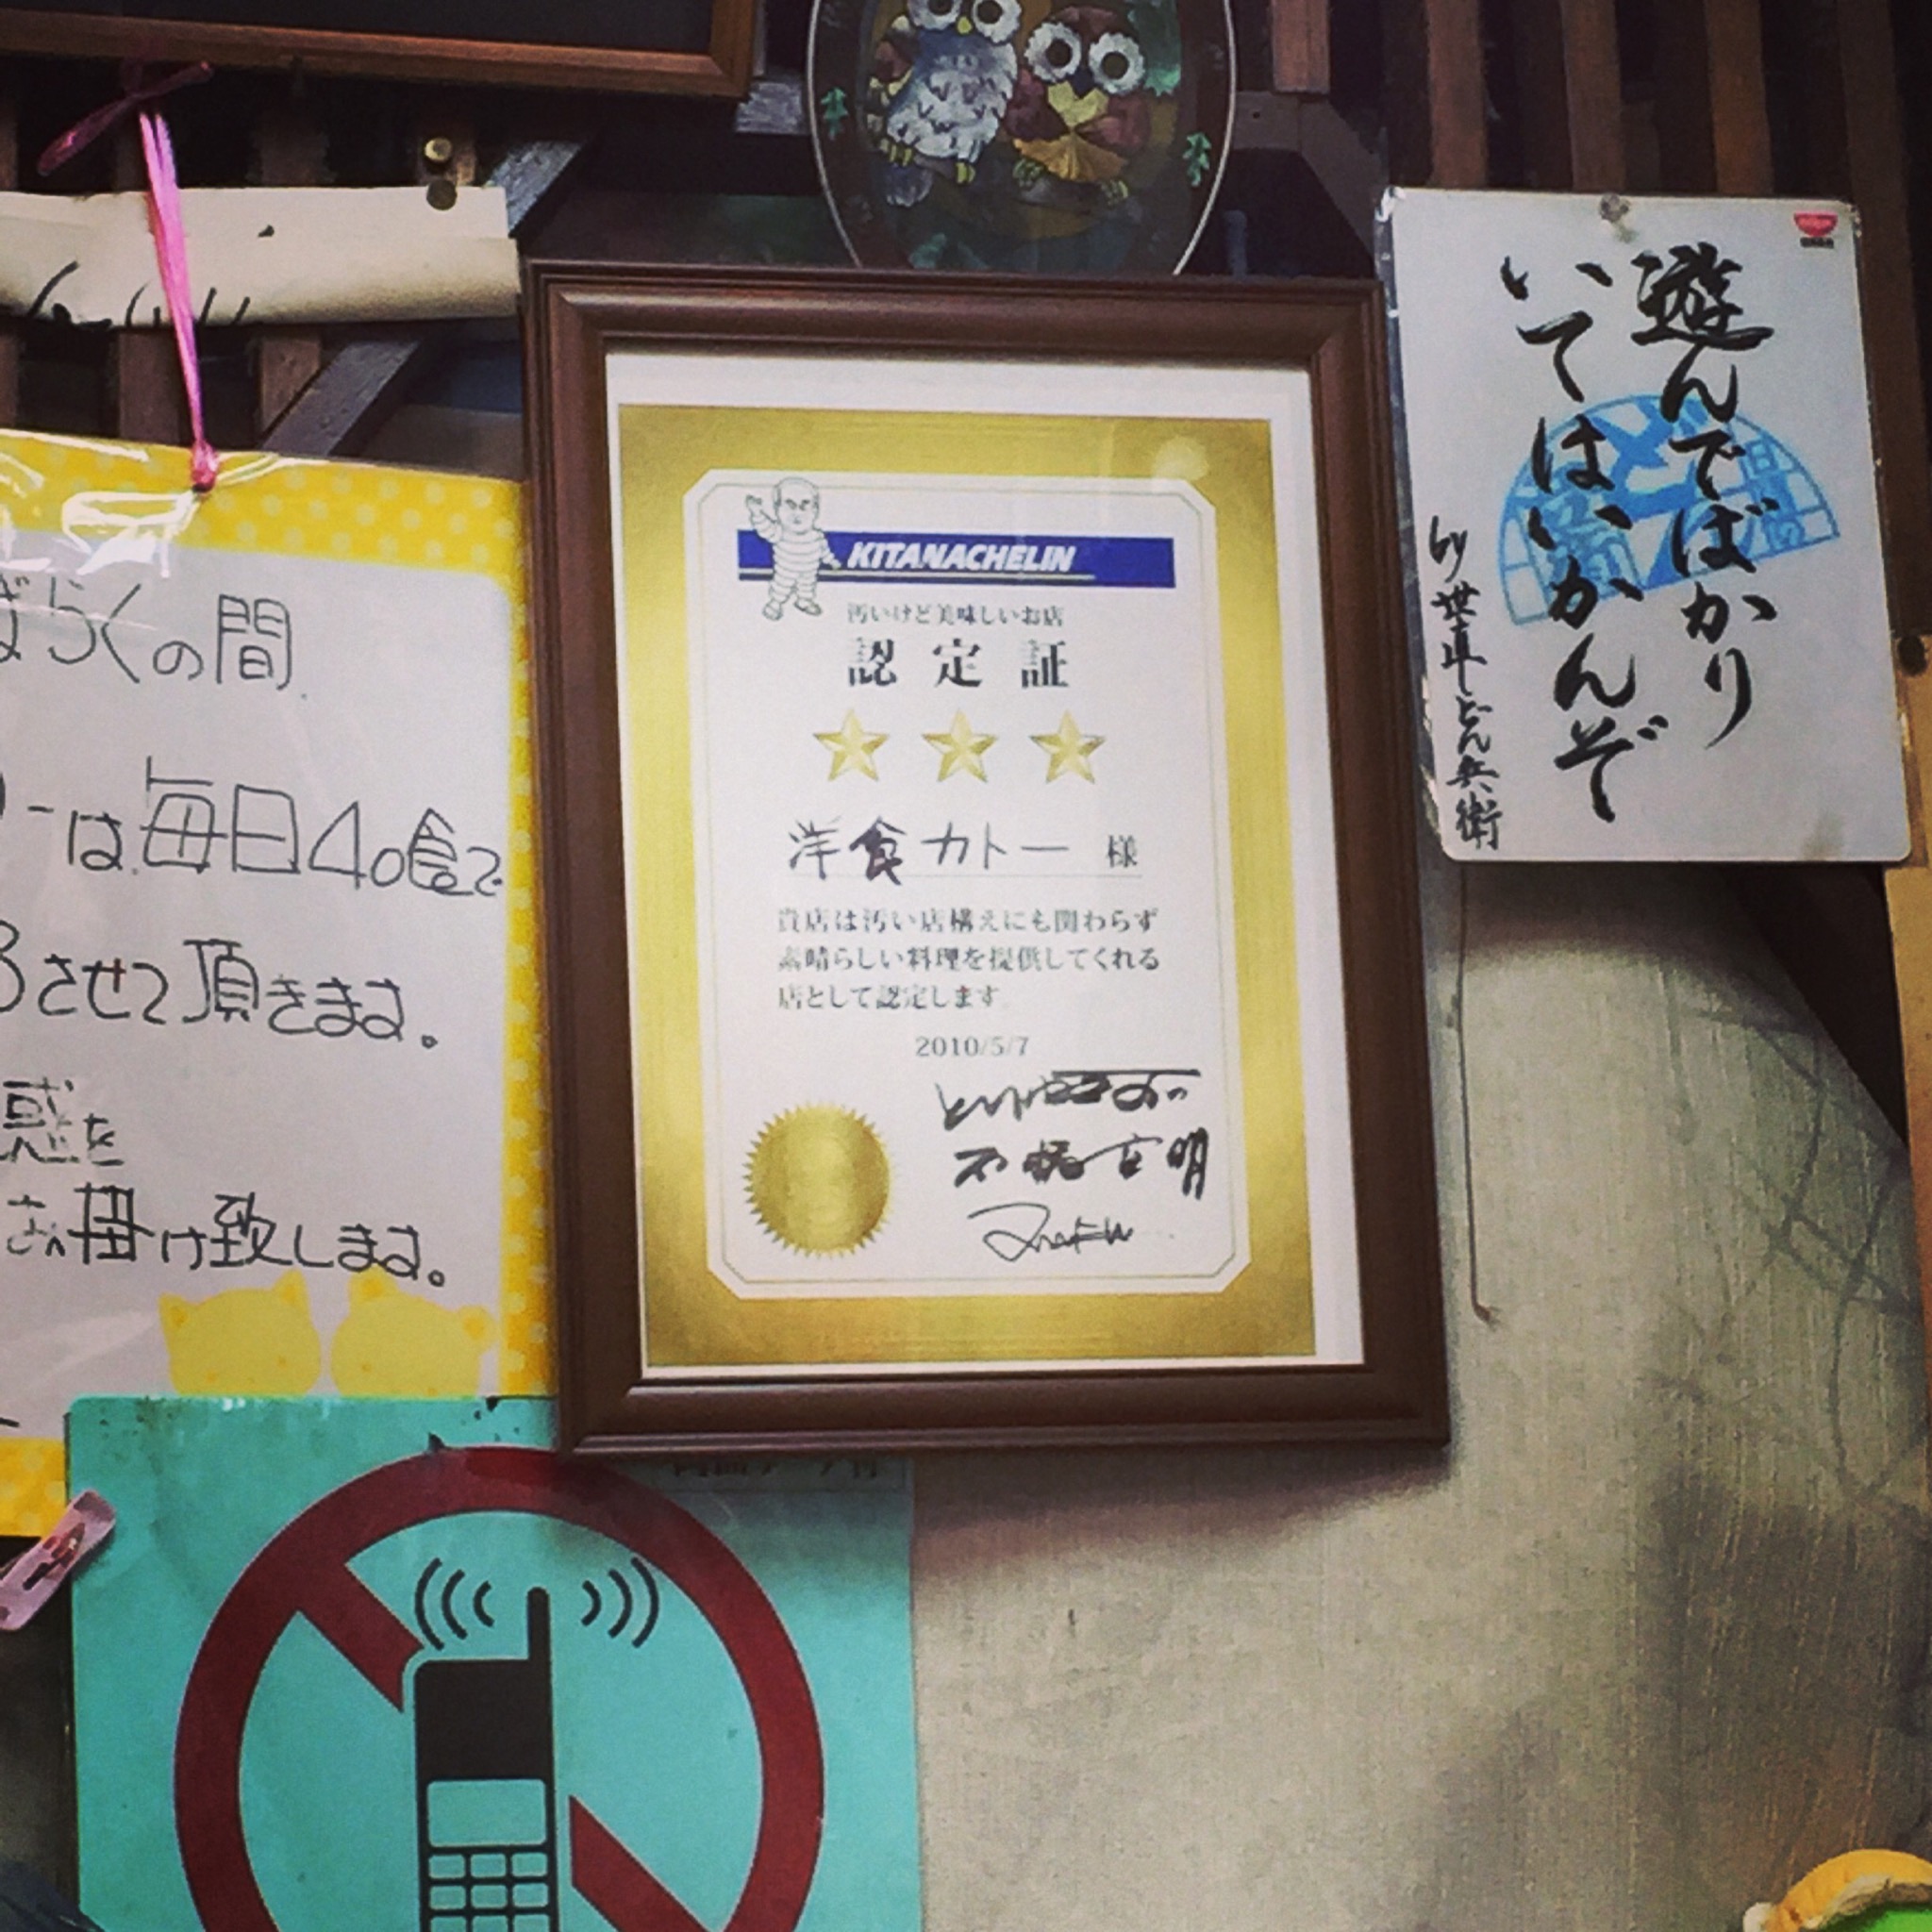 らくの間
ーは毎日40食で
させて頂きます。
惑を
お掛け致します。
KITANACHELIN
汚いけど美味しいお店
認定証
洋食カトー 様
貴店は汚い店構えにも関わらず
素晴らしい料理を提供してくれる
店として認定します
2010/5/7
石橋貴明
遊んでばかり
いてはいかんぞ
by 世直しどん兵衛